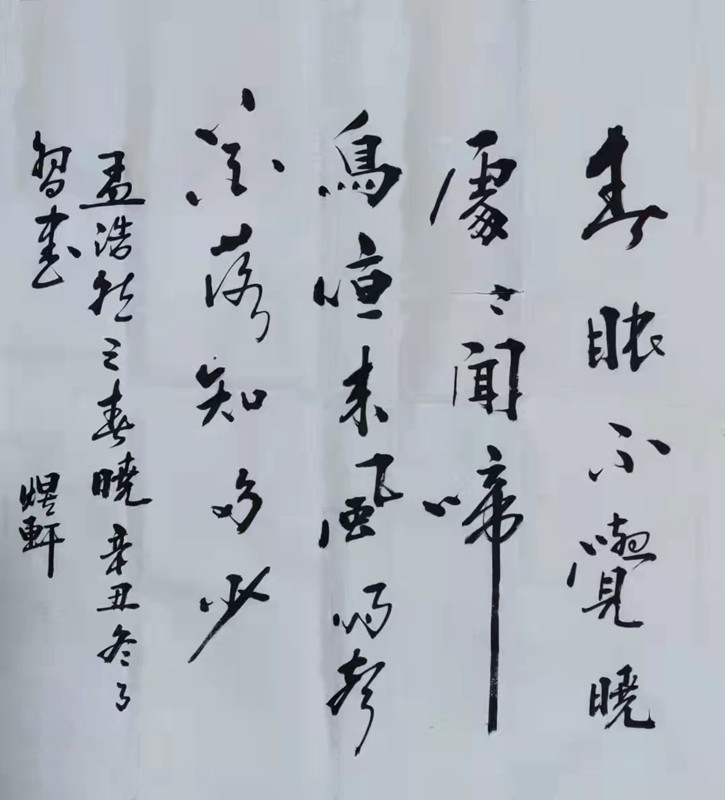 春眠不覺曉
處〻聞啼
鳥来風雨聲
花落知多少
孟浩然之春曉 辛丑冬月
習書 煜軒